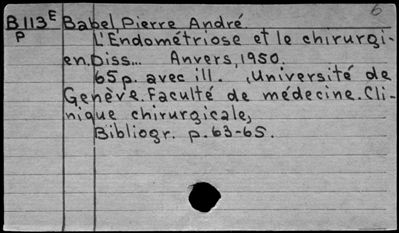 6
B113E Babel Pierre André
P L'Endométriose et le chirurgi-
en. Diss... Anvers, 1950.
65p. avec ill. , Université de
Genève. Faculté de médecine. Cli-
nique chirurgicale,
Bibliogr. p. 63-65.